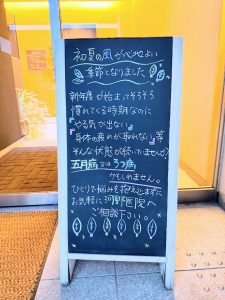 初夏の風が心地よい
季節となりました
新年度が始まってそろそろ
慣れてくる時期なのに
「やる気が出ない」
「身体の疲れが取れない」等
そんな状態が続いていませんか?
五月病又はうつ病
かもしれません。
ひとりで悩みを抱え込まずに
お気軽に河野医院へ
ご相談下さい。